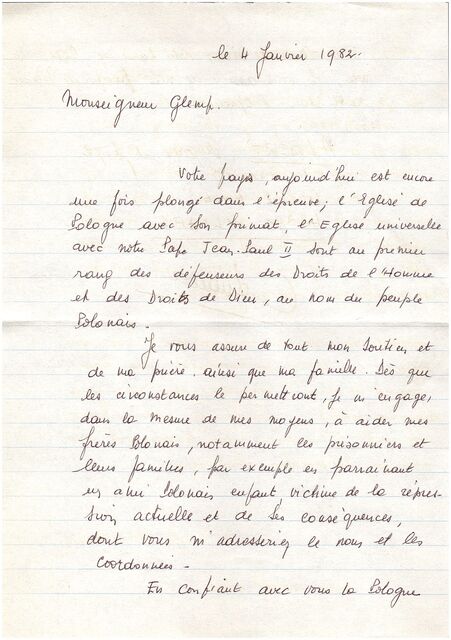 le 4 Janvier 1982.
Monseigneur Glemp.
Votre pays, aujourd'hui est encore
une fois plongé dans l'épreuve; l'Eglise de
Pologne avec son primat, l'Eglise universelle
avec notre Pape Jean-Paul II sont au premier
rang des défenseurs des Droits de l'Homme
et des Droits de Dieu, au nom du peuple
Polonais.
Je vous assure de tout mon soutien et
de ma prière ainsi que ma famille. Dès que
les circonstances le permettront, je m'engage,
dans la mesure de mes moyens, à aider mes
frères Polonais, notamment les prisonniers et
leurs familles, par exemple en parrainant
un ami Polonais enfant, victime de la répres-
sion actuelle et de ses conséquences,
dont vous m'adresseriez le nom et les
coordonnées -
En confiant avec vous la Pologne